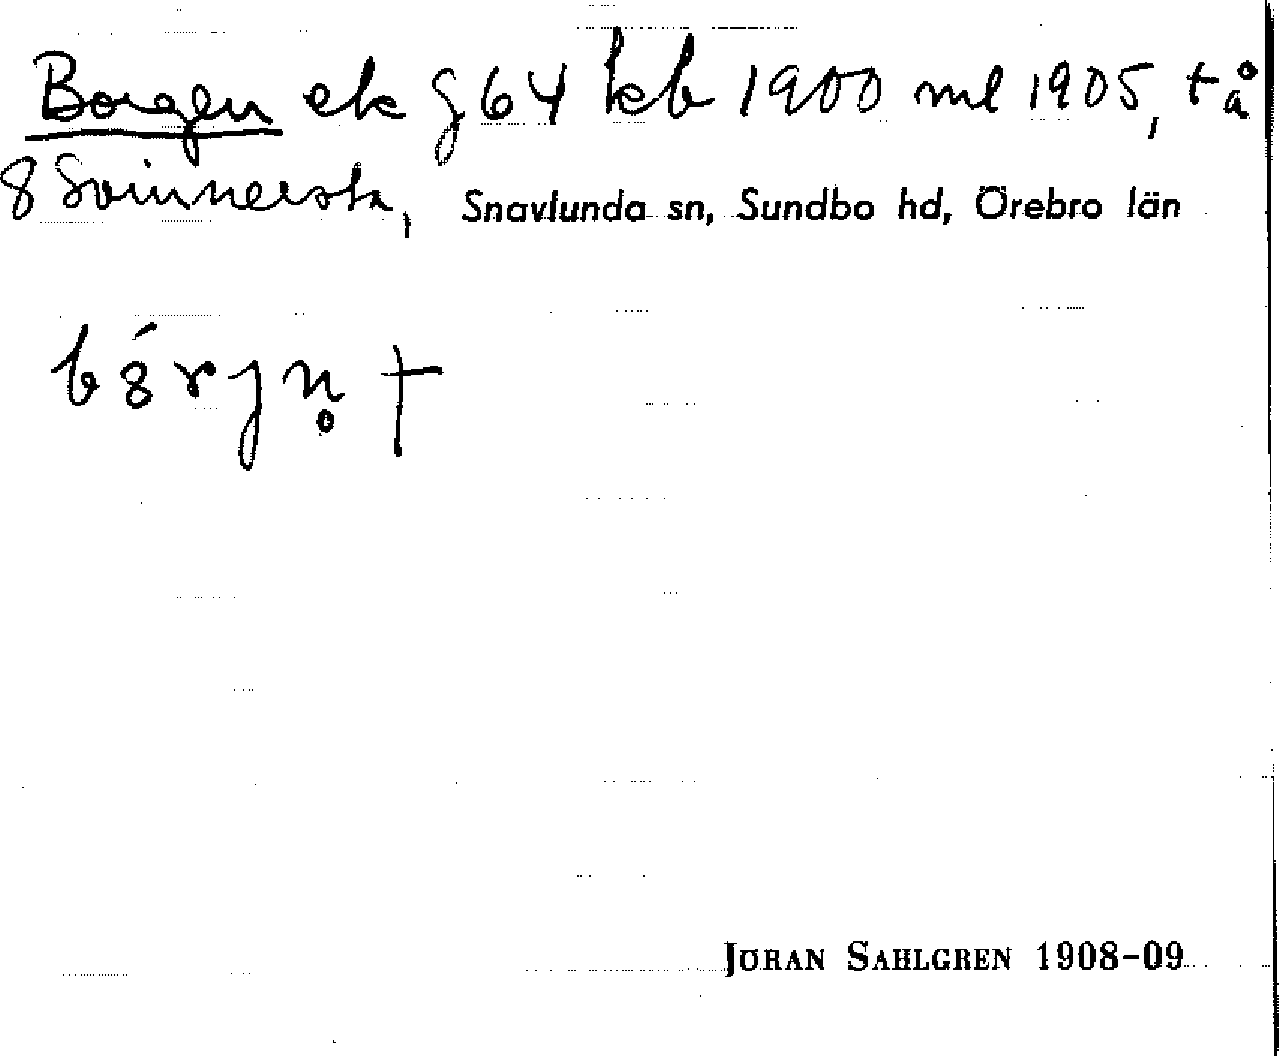 Borgen ek g 64 kb 1900 ml 1905, t å
8 Svinnersta, Snavlunda sn, Sundbo hd, Örebro län
b8́rjn̥ †
JÖRAN SAHLGREN 1908-09